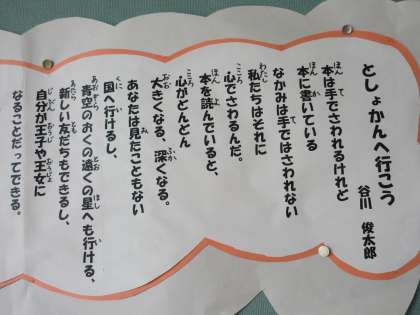 としょかんへ行こう
谷川　俊太郎
本は手でさわれるけれど
本に書いている
なかみは手ではさわれない
私たちはそれに
心でさわるんだ。
本を読んでいると、
心がどんどん
大きくなる、深くなる。
あなたは見たこともない
国へ行けるし、
青空のおくの遠くの星へも行ける、
新しい友だちもできるし、
自分が王子や王女に
なることだってできる。